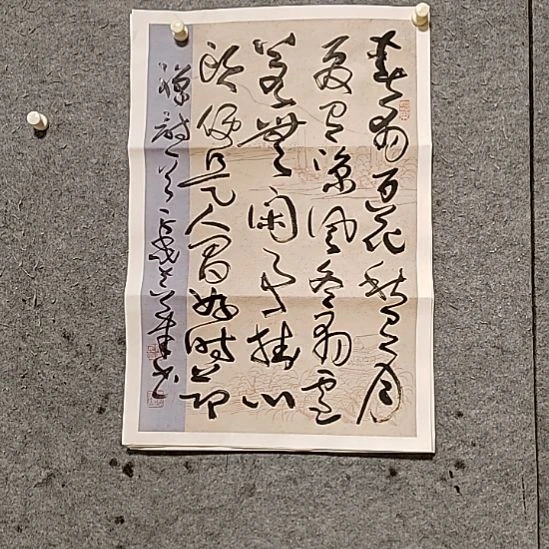 春有百花秋有月
夏有凉风冬有雪
若无闲事挂心
头便是人间好时节
禅诗一首